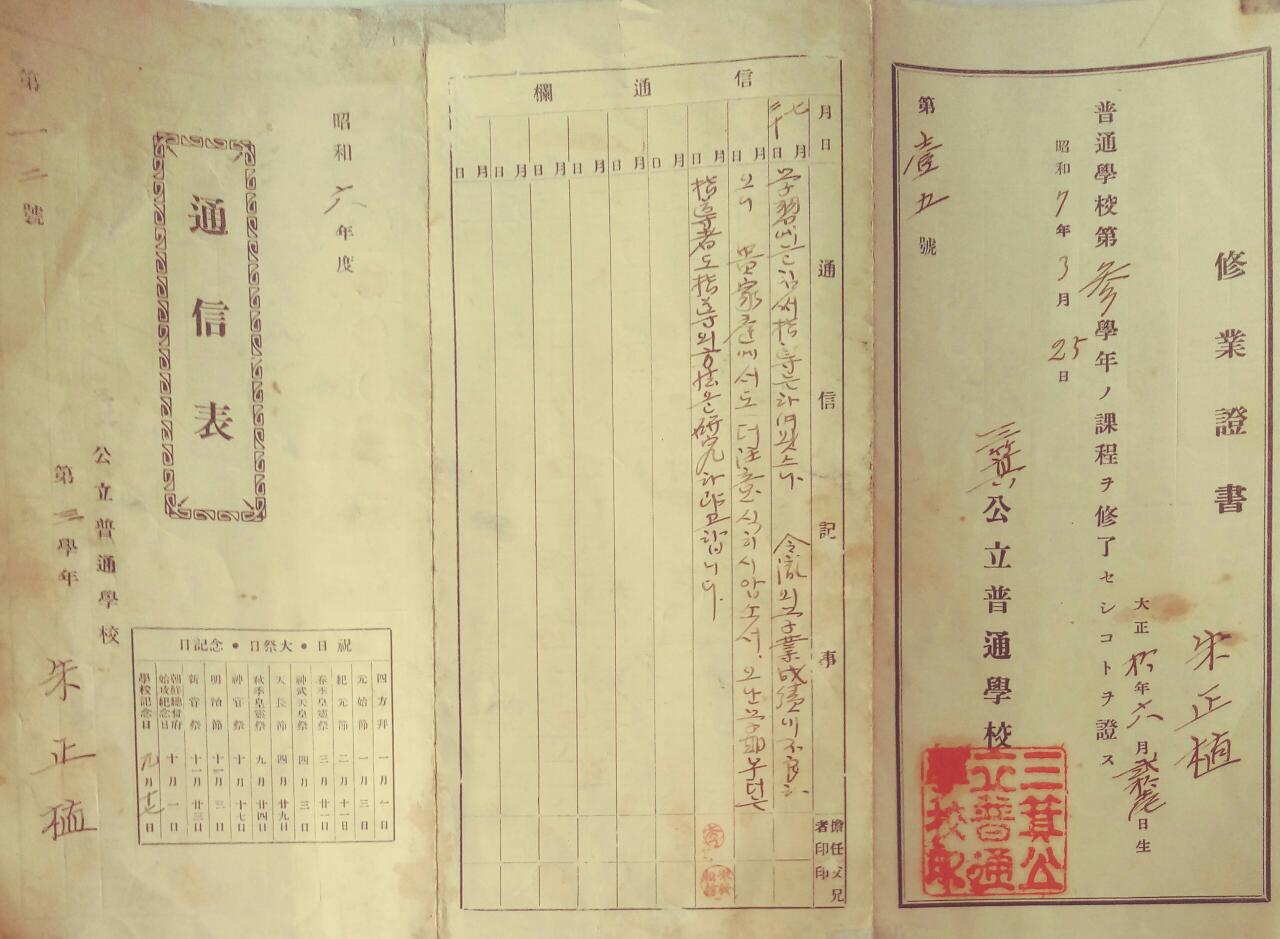 修業證書
朱正植
大正 年六月 日生
普通學校第參學年ノ課程ヲ修了セシコトヲ證ス
昭和7年3月25日
三箕公立普通學校
三箕公立普通學校印
第壹五號
信通欄
月日
通信記事
擔任者印
父兄印
七月二十日
學習 指導 하여왓스나 令 의 學業成績이 不良하
오니 貴家庭에서도 더 注意식히시압소서. 오난 學期부터는
指導者도 指導의 方法을 研究하랴고 합니다.
月日
月日
月日
月日
月日
月日
月日
月日
昭和六年度
通信表
公立普通學校
第三學年
朱正植
第一二號
祝日・大祭日・念記日
四方拜 一月一日
元始節 一月三日
紀元節 二月十一日
春季皇靈祭 三月廿一日
神武天皇祭 四月三日
天長節 四月廿九日
秋季皇靈祭 九月廿四日
神官祭 十月十七日
明治節 十一月三日
新嘗祭 十一月廿三日
朝鮮總督府始政紀念日 十月一日
學校記念日 九月十七日